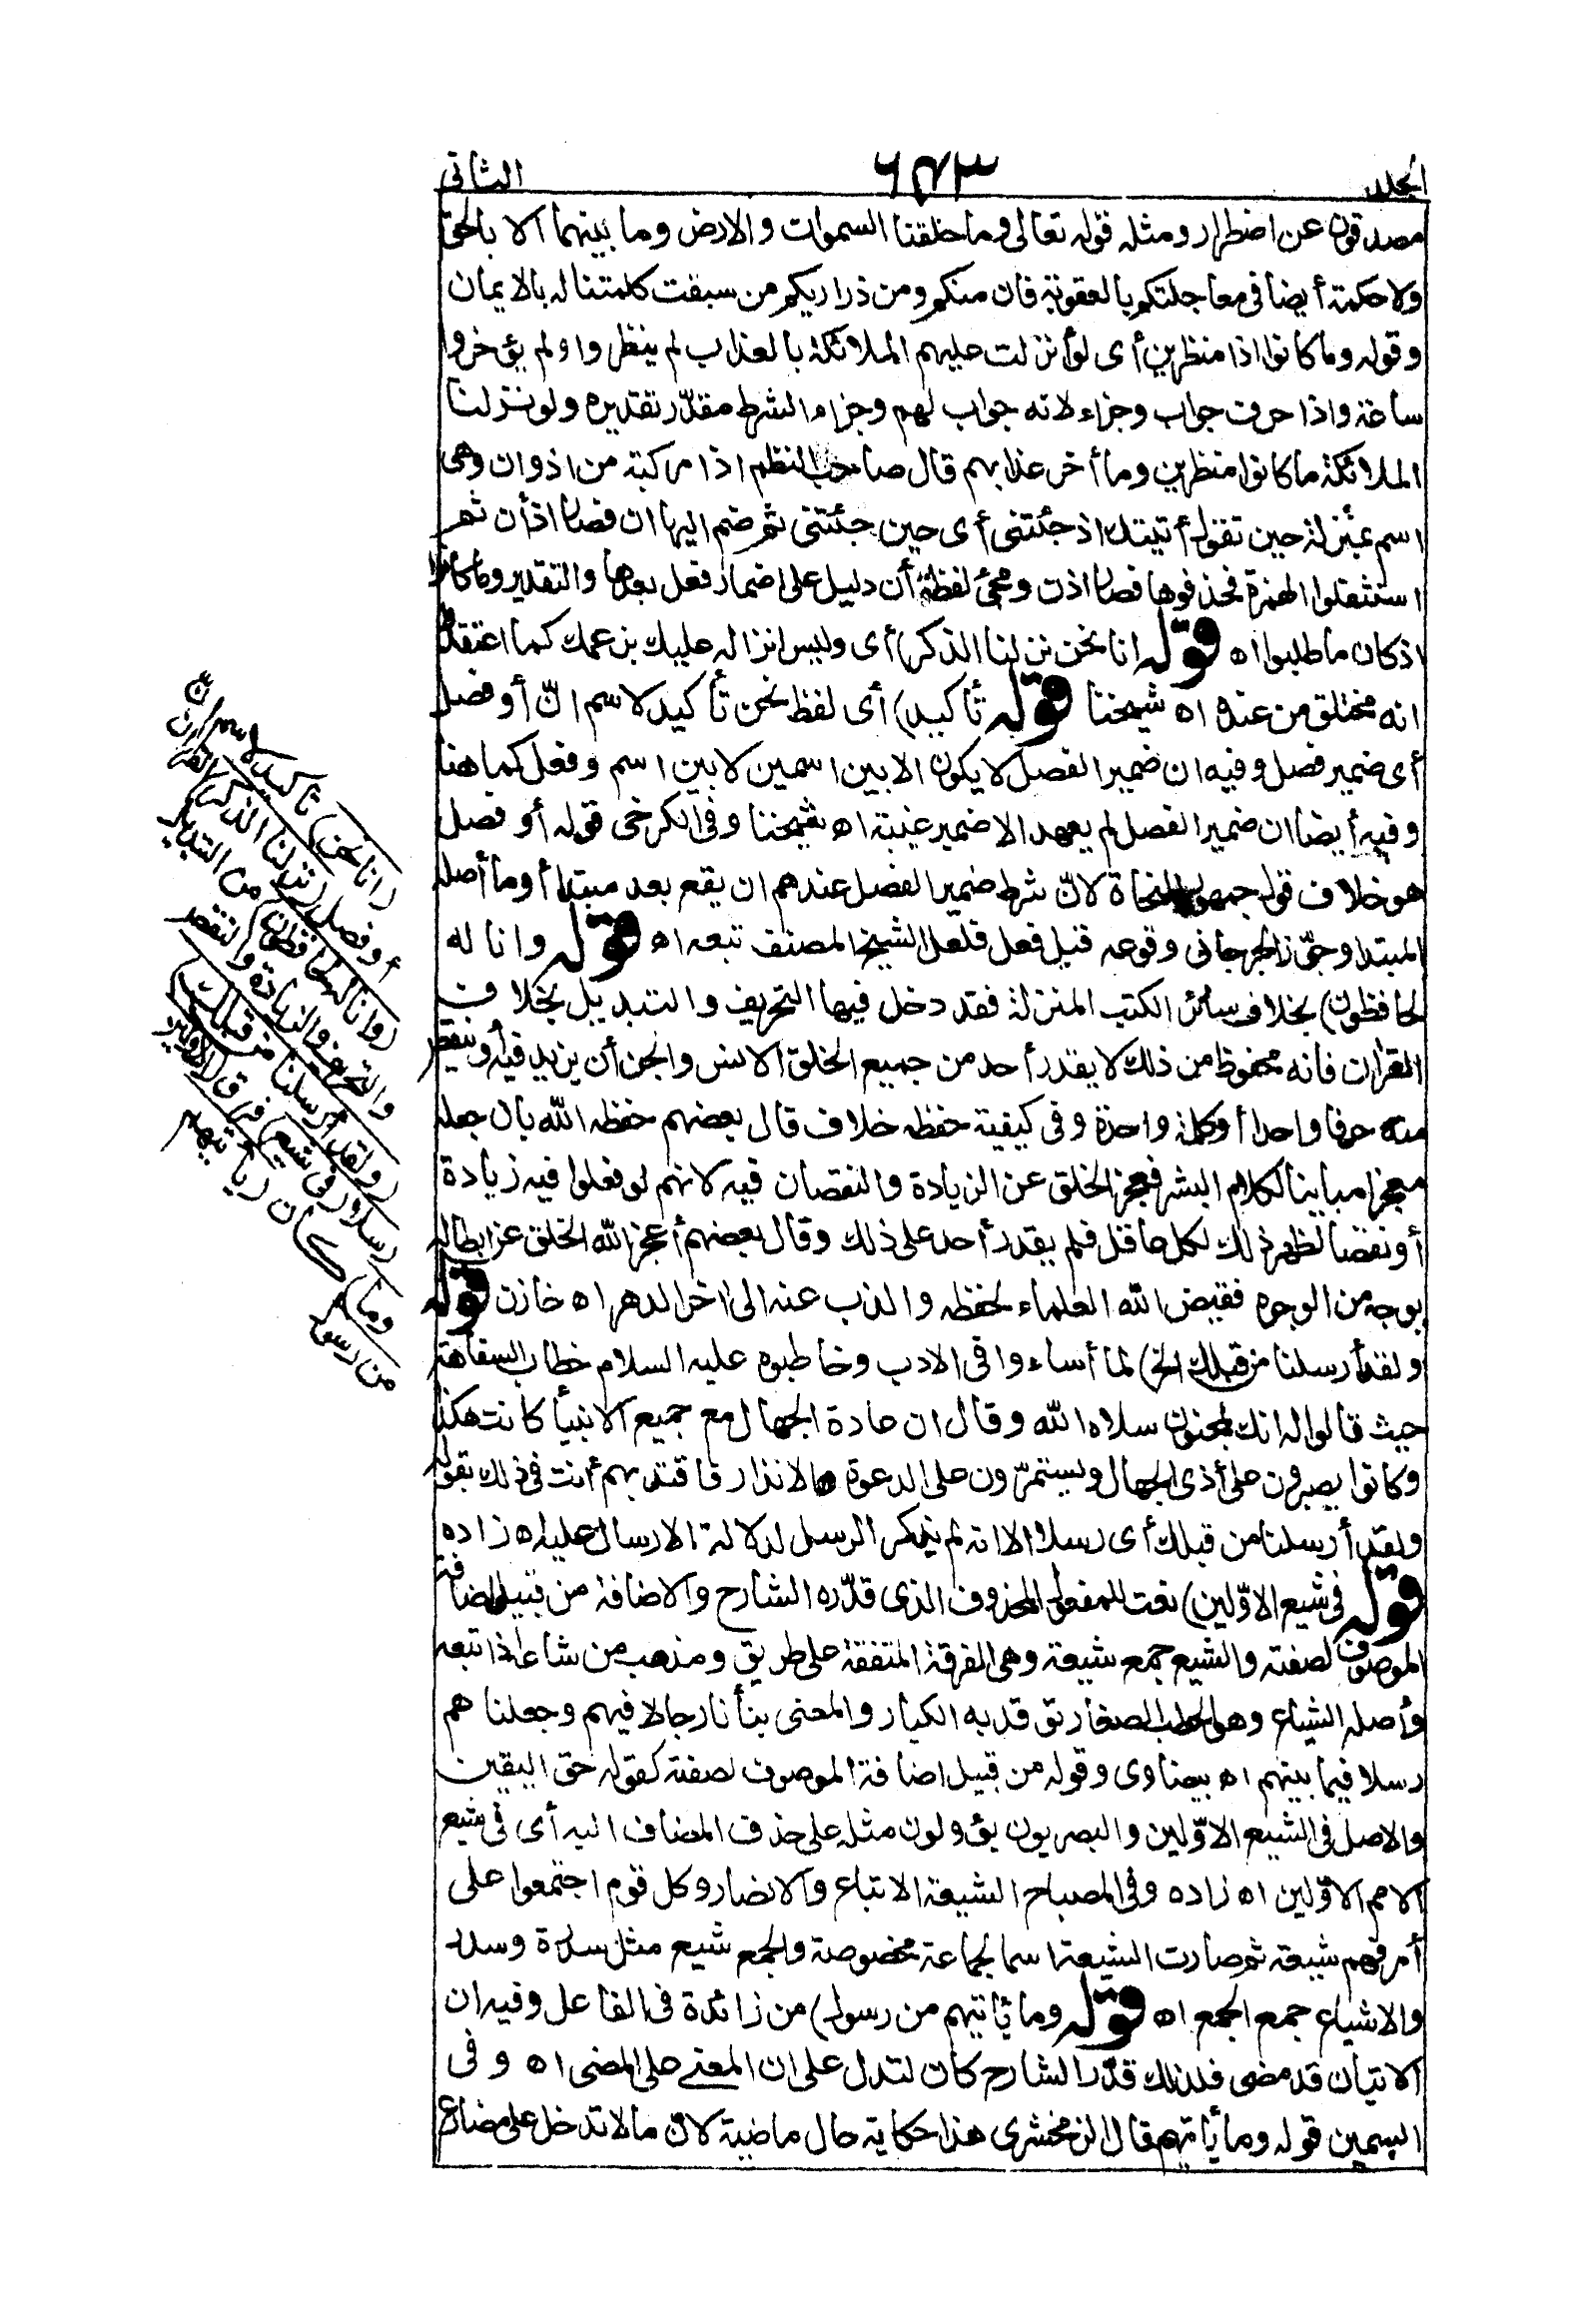 المجلد
٦٤٣
الثانى
مصدقون عن اضطرار ومثله قوله تعالى وما خلقنا السموات والارض وما بينهما الا بالحق
ولا حكمة أيضا فى معاجلتكم بالعقوبة فان منكم ومن ذراريكم من سبقت كلمتنا له بالايمان
وقوله وما كانوا اذا منظرين أى لو أنزلت عليهم الملائكة بالعذاب لم ينظروا ولم يؤخروا
ساعة واذا حرف جواب وجزاء لانه جواب لهم وجزاء الشرط مقدّر تقديره ولو نزلنا
الملائكة ما كانوا منظرين وما أخر عذابهم قال صاحب النظم اذا مركبة من اذ وان وهى
اسم بمنزلة حين تقول أتيتك اذ جئتنى أى حين جئتنى ثم ضم اليها ان فصار اذ أن ثم
استثقلوا الهمزة فحذفوها فصار اذن ومجئ لفظة أن دليل على اضمار فعل بعدها والتقدير وما كانوا
اذ كان ما طلبوا اه قوله انا نحن نزلنا الذكر) أى وليس انزاله عليك بزعمك كما اعتقدوا
انه مختلق من عندك اه شيخنا قوله تأكيد) أى لفظ نحن تأكيد لاسم انّ أو فصل
أى ضمير فصل وفيه ان ضمير الفصل لا يكون الا بين اسمين لا بين اسم وفعل كما هنا
وفيه أيضا ان ضمير الفصل لم يعهد الا ضمير غيبة اه شيخنا وفى الكرخى قوله أو فصل
هو خلاف قول جمهور النحاة لانّ شرط ضمير الفصل عندهم ان يقع بعد مبتدا أو ما أصله
المبتدا وجوّز الجرجانى وقوعه قبل فعل فلعل الشيخ المصنف تبعه اه قوله وانا له
لحافظون) بخلاف سائر الكتب المنزلة فقد دخل فيها التحريف والتبديل بخلاف
القرآن فانه محفوظ من ذلك لا يقدر أحد من جميع الخلق الانس والجن أن يزيد فيه أو ينقص
منه حرفا واحدا أو كلمة واحدة وفى كيفية حفظه خلاف قال بعضهم حفظه الله بان جعله
معجزا مباينا لكلام البشر فعجز الخلق عن الزيادة والنقصان فيه لانهم لو فعلوا فيه زيادة
أو نقصا لظهر ذلك لكل عاقل فلم يقدر أحد على ذلك وقال بعضهم أعجز الله الخلق عن ابطاله
بوجه من الوجوه فقيض الله العلماء لحفظه والذب عنه الى اخر الدهر اه خازن قوله
ولقد أرسلنا من قبلك الخ) لما أساءوا فى الادب وخاطبوه عليه السلام خطاب السفاهة
حيث قالوا له انك لمجنون سلاه الله وقال ان عادة الجهال مع جميع الانبيأ كانت هكذا
وكانوا يصبرون على أذى الجهال ويستمرّون على الدعوة والانذار فاقتد بهم أنت فى ذلك بقوله
ولقد أرسلنا من قبلك أى رسلا الا انه لم يذكر الرسل لدلالة الارسال عليه اه زاده
قوله فى شيع الاوّلين) نعت للمفعول المحذوف الذى قدّره الشارح والاضافة من قبيل اضافة
الموصوف لصفته والشيع جمع شيعة وهى الفرقة المتفقة على طريق ومذهب من شاعه اذا تبعه
وأصله الشياع وهو الحطب الصغار توقد به الكبار والمعنى نبأنا رجالا فيهم وجعلناهم
رسلا فيما بينهم اه بيضاوى وقوله من قبيل اضافة الموصوف لصفته كقوله حق اليقين
والاصل فى الشيع الاوّلين والبصريون يؤولون مثله على حذف المضاف اليه أى فى شيع
الامم الاوّلين اه زاده وفى المصباح الشيعة الاتباع والانصار وكل قوم اجتمعوا على
أمر فهم شيعة ثم صارت الشيعة اسما لجماعة مخصوصة والجمع شيع مثل سدرة وسدر
والاشياع جمع الجمع اه قوله وما يأتيهم من رسول) من زائدة فى الفاعل وفيه ان
الاتيان قد مضى فلذلك قدّر الشارح كان لتدل على ان المعنى على المضى اه وفى
السمين قوله وما يأتيهم قال الزمخشرى هذا حكاية حال ماضية لانّ ما لا تدخل على مضارع
(انا نحن) تأكيد لاسم انّ
أو فصل (نزلنا الذكر) القرآن
(وانا له لحافظون) من التبديل
والتحريف والزيادة والنقص
(ولقد أرسلنا من قبلك)
رسلا (فى شيع) فرق (الاولين
وما) كان (يأتيهم
من رسول